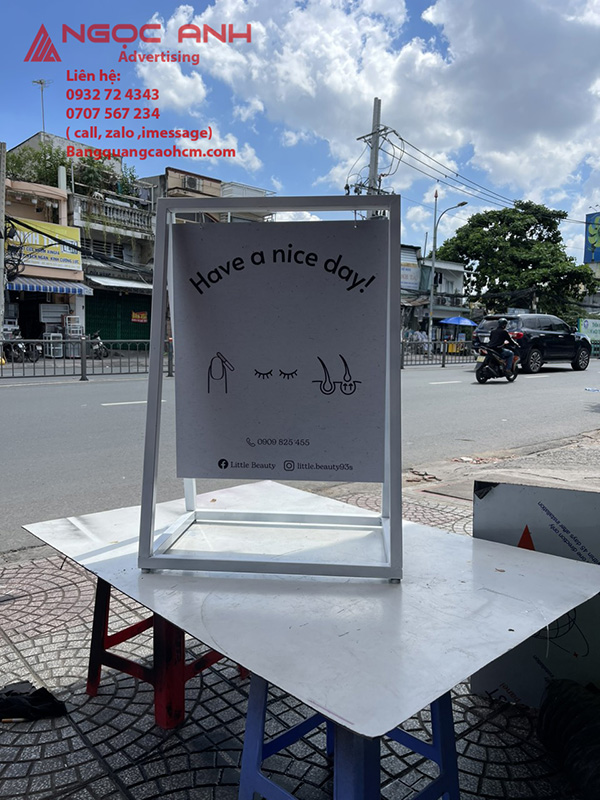 NGỌC ANH
Advertising
Liên hệ:
0932 72 4343
0707 567 234
( call, zalo ,imessage)
Bangquangcaohcm.com
Have a nice day!
0909 825 455
Little Beauty little.beauty93s